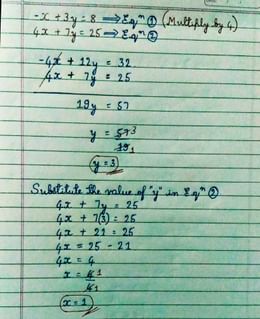 -x + 3y = 8 ⟹ Eqⁿ ① (Multiply by 4)
4x + 7y = 25 ⟹ Eqⁿ ②
-4x + 12y = 32
4x + 7y = 25
19y = 57
y = 57 3
19 1
y = 3
Substitute the value of "y" in Eqⁿ ②
4x + 7y = 25
4x + 7(3) = 25
4x + 21 = 25
4x = 25 - 21
4x = 4
x = 4 1
4 1
x = 1